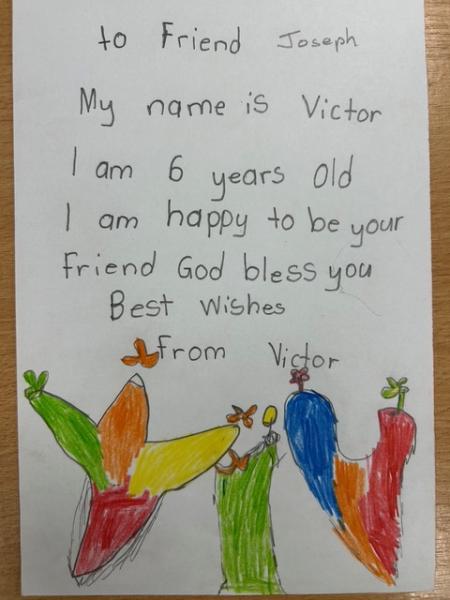 to Friend Joseph
My name is Victor
I am 6 years old
I am happy to be your
Friend God bless you
Best Wishes
From Victor